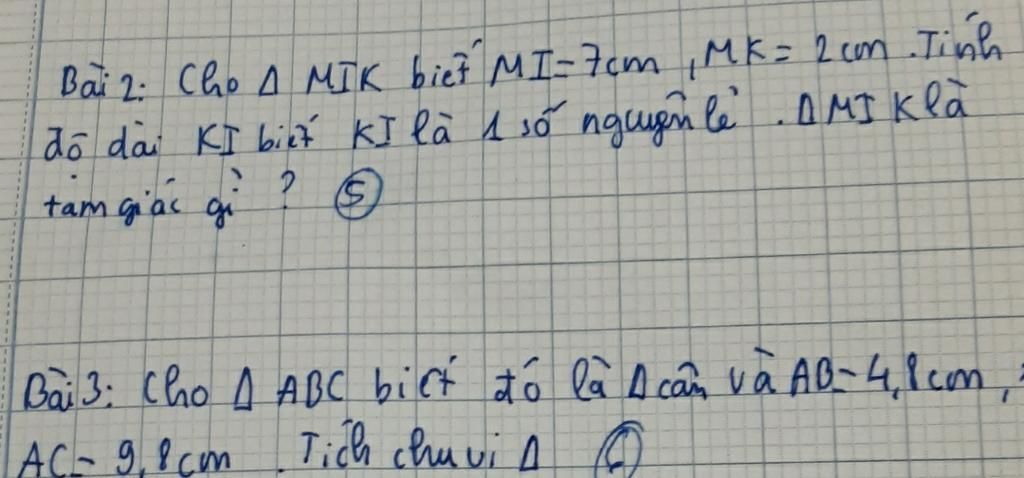 Bài 2: Cho Δ MIK biết MI = 7cm, MK = 2cm. Tính
độ dài KI biết KI là 1 số nguyên lẻ. Δ MIK là
tam giác gì? ⑤
Bài 3: Cho Δ ABC biết đó là Δ cân và AB = 4,8cm,
AC = 9,8cm. Tích chu vi Δ